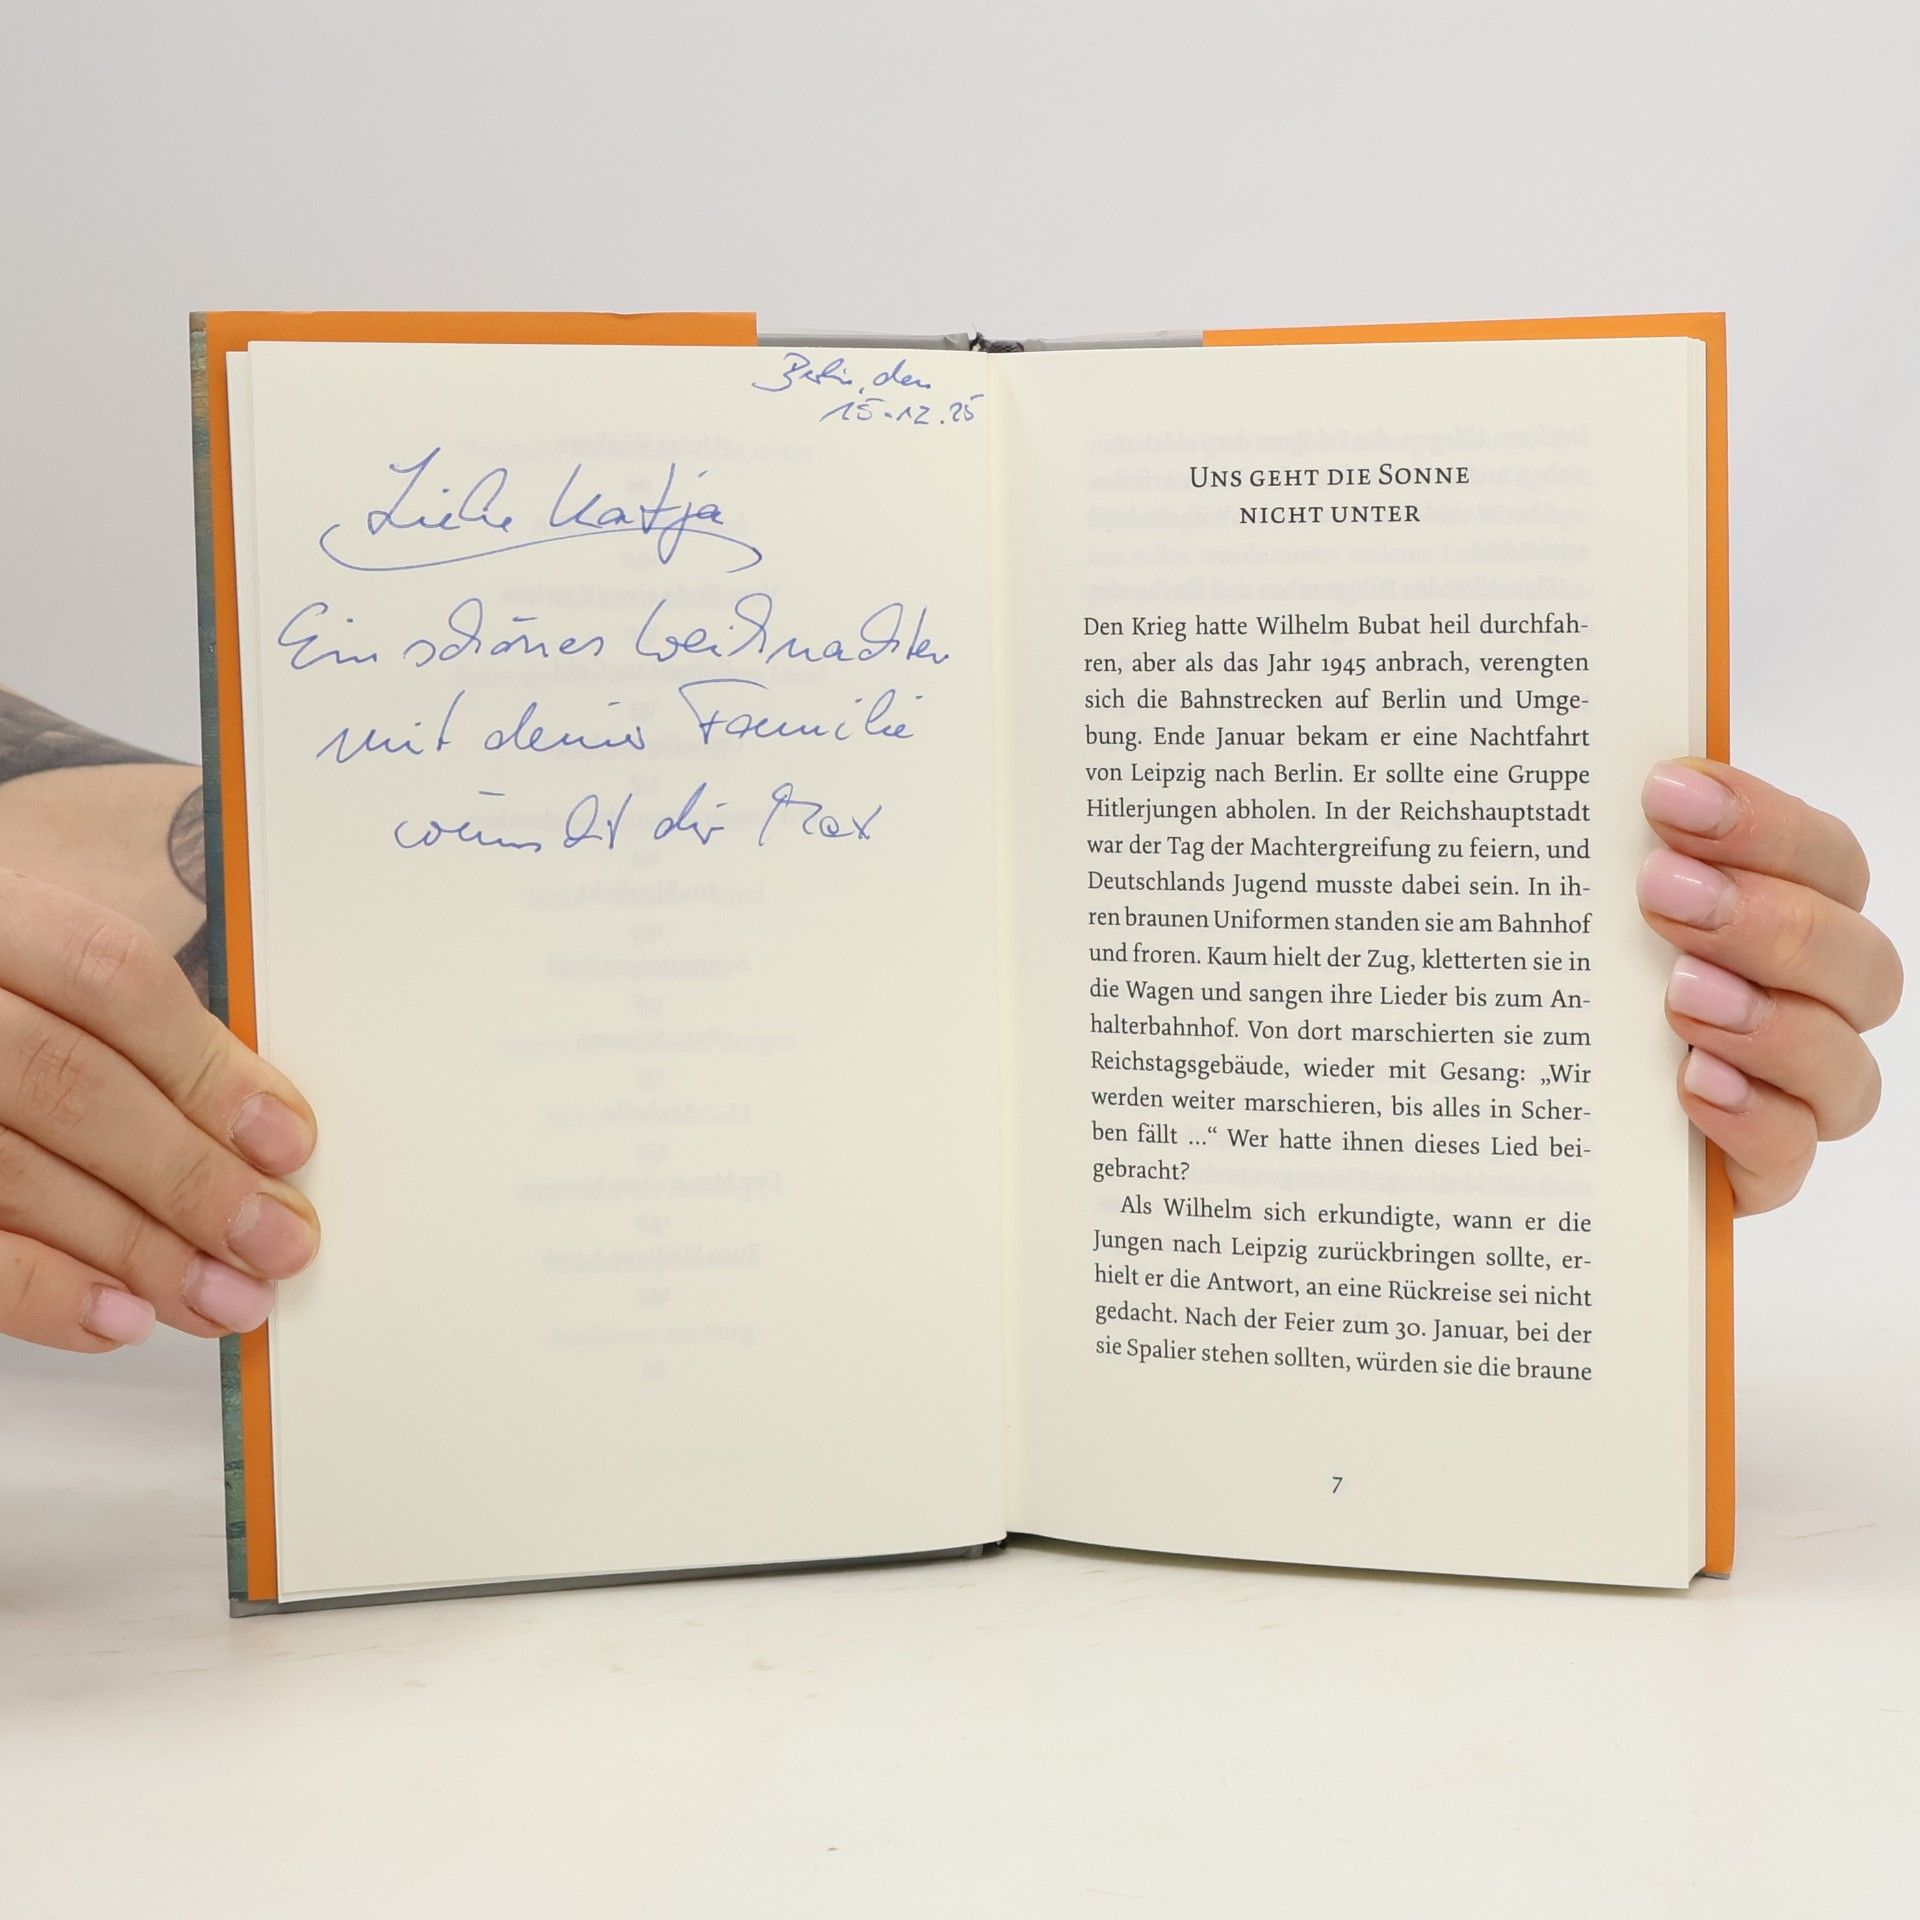 Berlin, den
15.12.25
Liebe Katja
Ein schönes Weihnachten
mit deiner Familie
wünscht dir Max
UNS GEHT DIE SONNE
NICHT UNTER
Den Krieg hatte Wilhelm Bubat heil durchfah-
ren, aber als das Jahr 1945 anbrach, verengten
sich die Bahnstrecken auf Berlin und Umge-
bung. Ende Januar bekam er eine Nachtfahrt
von Leipzig nach Berlin. Er sollte eine Gruppe
Hitlerjungen abholen. In der Reichshauptstadt
war der Tag der Machtergreifung zu feiern, und
Deutschlands Jugend musste dabei sein. In ih-
ren braunen Uniformen standen sie am Bahnhof
und froren. Kaum hielt der Zug, kletterten sie in
die Wagen und sangen ihre Lieder bis zum An-
halterbahnhof. Von dort marschierten sie zum
Reichstagsgebäude, wieder mit Gesang: „Wir
werden weiter marschieren, bis alles in Scher-
ben fällt ...“ Wer hatte ihnen dieses Lied bei-
gebracht?
Als Wilhelm sich erkundigte, wann er die
Jungen nach Leipzig zurückbringen sollte, er-
hielt er die Antwort, an eine Rückreise sei nicht
gedacht. Nach der Feier zum 30. Januar, bei der
sie Spalier stehen sollten, würden sie die braune
7